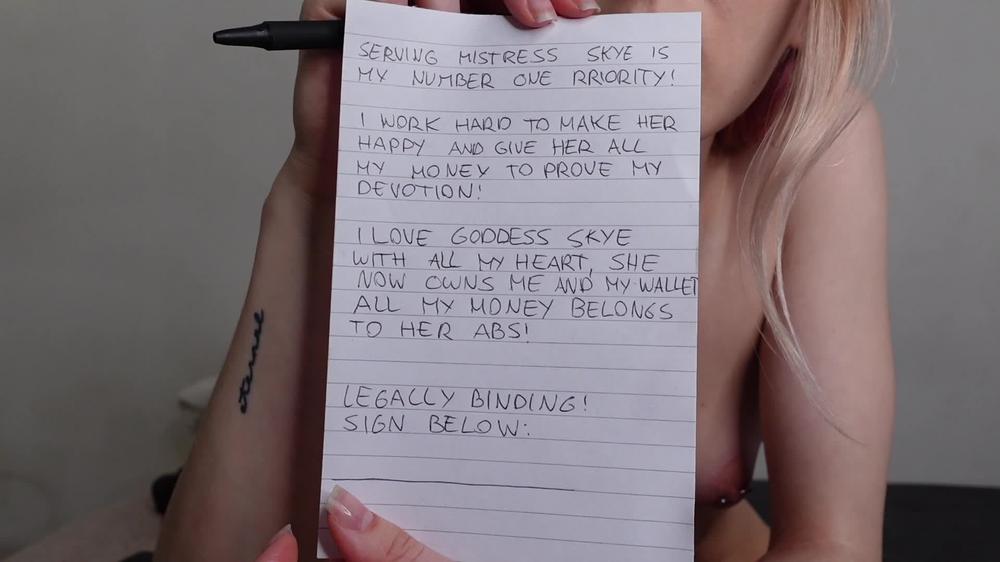 SERVING MISTRESS SKYE IS
MY NUMBER ONE PRIORITY!
I WORK HARD TO MAKE HER
HAPPY AND GIVE HER ALL
MY MONEY TO PROVE MY
DEVOTION!
I LOVE GODDESS SKYE
WITH ALL MY HEART, SHE
NOW OWNS ME AND MY WALLET
ALL MY MONEY BELONGS
TO HER ABS!
LEGALLY BINDING!
SIGN BELOW:
eternal